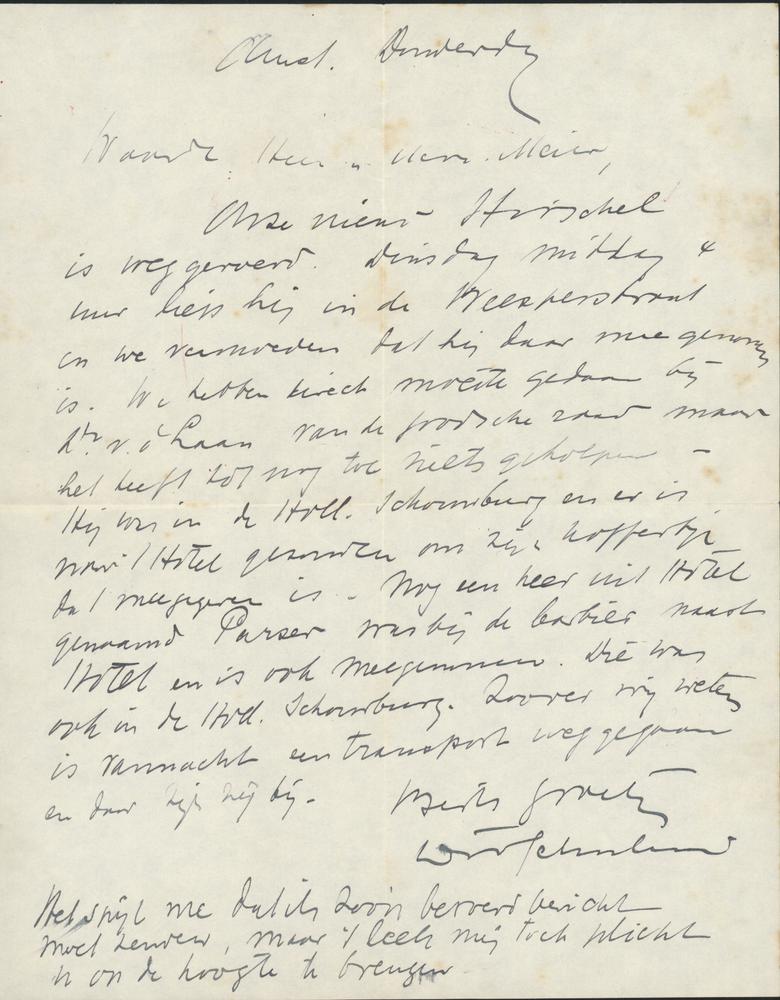 Amst. Donderdag
Waarde Heer en Mevr. Meier,
Onze nieuwe Hirschel
is weggevoerd. Dinsdag middag 4
uur liep hij in de Weesperstraat
en we vermoeden dat hij daar mee genomen
is. We hebben direct moeite gedaan bij
dhr. v. d Laan van de Joodsche raad maar
het heeft tot nog toe niets geholpen -
Hij was in de Holl. Schouwburg en er is
naar 't Hotel gezonden om zijn koffertje
dat meegegeven is. Nog een heer uit Hotel
genaamd Parser was bij de barbier naast
Hotel en is ook meegenomen. Die was
ook in de Holl. Schouwburg. Zoover wij weten
is vannacht een transport weggegaan
en daar zijn zij bij. Beste groeten
Het spijt me dat ik zoo'n beroerd bericht
moet zenden, maar 't leek mij toch plicht
U op de hoogte te brengen